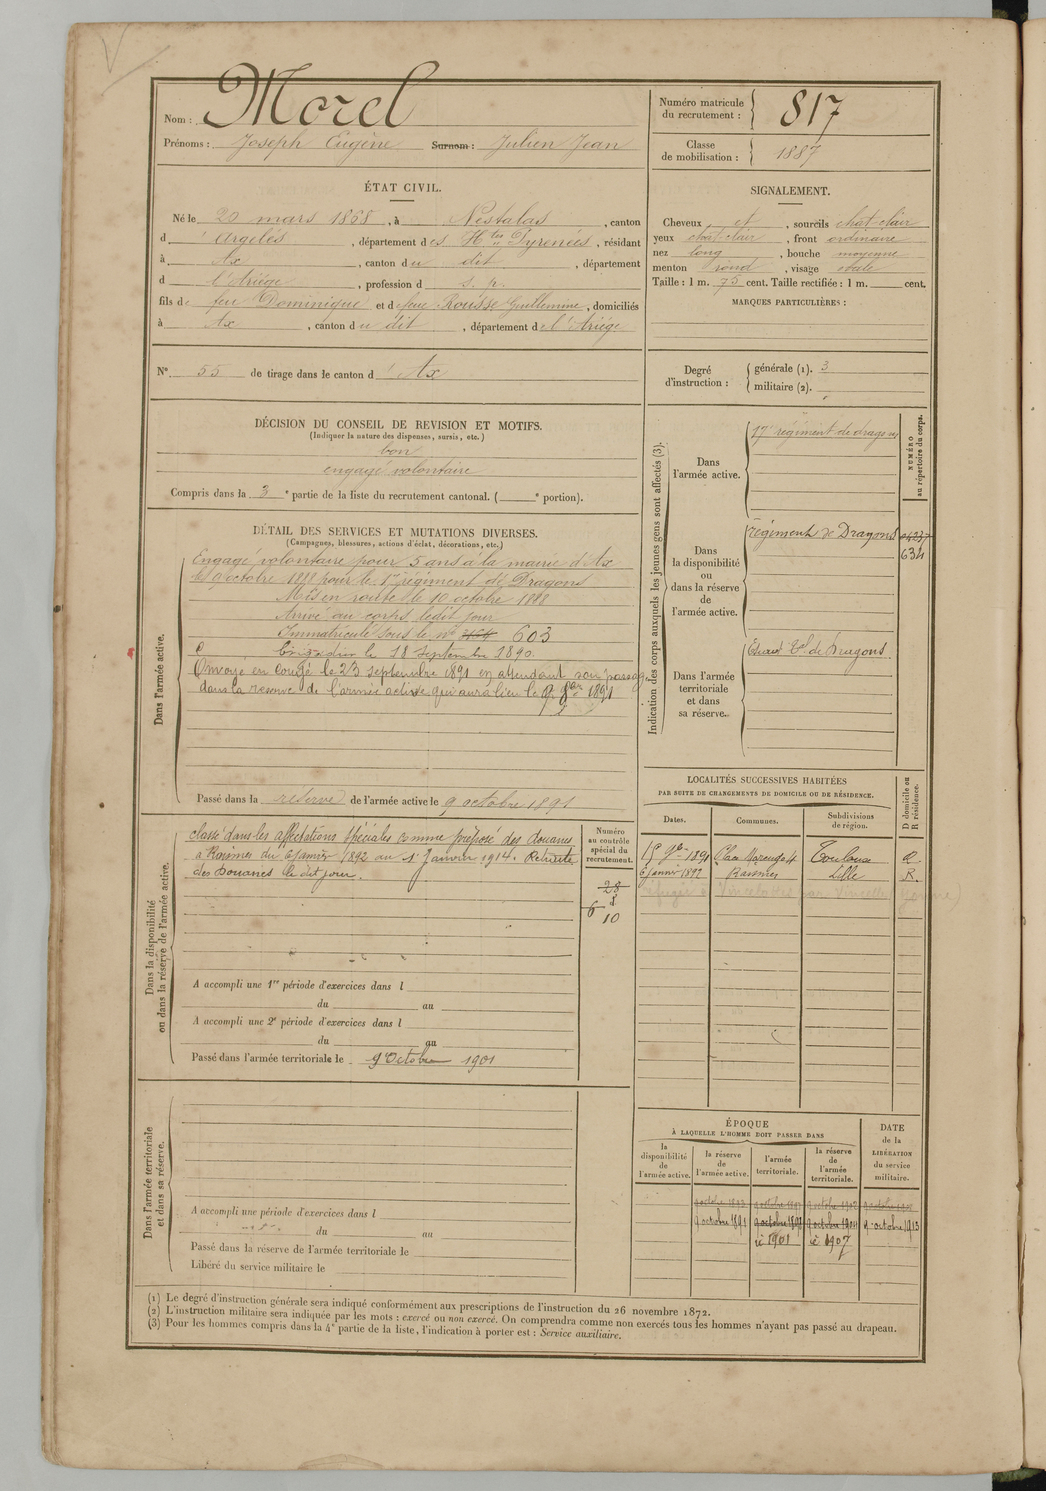 Nom : Morel
Prénoms : Joseph Eugène Surnom : Julien Jean
Numéro matricule du recrutement : 817
Classe de mobilisation : 1887
ÉTAT CIVIL.
Né le 20 mars 1868, à Nestalas, canton
d'Argelès, département des Htes Pyrenées, résidant
à Ax, canton du dit, département
d l'Ariège, profession d s. p.
fils de feu Dominique et de feue Rousse Guillemine, domiciliés
à Ax, canton du dit, département de l'Ariége
SIGNALEMENT.
Cheveux et, sourcils chat-clair
yeux chat-clair, front ordinaire
nez long, bouche moyenne
menton rond, visage ovale
Taille : 1 m. 75 cent. Taille rectifiée : 1 m. cent.
MARQUES PARTICULIÈRES :
N° 55 de tirage dans le canton d'Ax
Degré d'instruction : générale (1). 3
militaire (2).
DÉCISION DU CONSEIL DE REVISION ET MOTIFS.
(Indiquer la nature des dispenses, sursis, etc.)
bon
engagé volontaire
Compris dans la 3e partie de la liste du recrutement cantonal. ( e portion).
DÉTAIL DES SERVICES ET MUTATIONS DIVERSES.
(Campagnes, blessures, actions d'éclat, décorations, etc.)
Dans l'armée active.
Engagé volontaire pour 5 ans à la mairie d'Ax
octobre 1888 pour le 17e régiment de Dragons
Mis en route le 10 octobre 1888
Arrivé au corps ledit jour
Immatriculé sous le n° 603
Brigadier le 18 septembre 1890.
Envoyé en congé le 23 septembre 1891 en attendant son passage
dans la reserve de l'armée active qui aura lieu le 9 8bre 1891
Passé dans la reserve de l'armée active le 9 octobre 1891
Indication des corps auxquels les jeunes gens sont affectés (3).
NUMÉRO au répertoire du corps.
Dans l'armée active.
17e régiment de dragons
Dans la disponibilité ou dans la réserve de l'armée active.
régiment de Dragons
634
Dans l'armée territoriale et dans sa réserve.
de Dragons
Dans la disponibilité ou dans la réserve de l'armée active.
classé dans les affectations spéciales comme préposé des douanes
à Raismes du 6 janvier 1892 au 1er Janvier 1914. Retraité
des Douanes le dit jour.
Numéro au contrôle spécial du recrutement.
28
8
6
10
A accompli une 1re période d'exercices dans l
du au
A accompli une 2e période d'exercices dans l
du au
Passé dans l'armée territoriale le 9 Octobre 1901
LOCALITÉS SUCCESSIVES HABITÉES
PAR SUITE DE CHANGEMENTS DE DOMICILE OU DE RÉSIDENCE.
Dates. Communes. Subdivisions de région. D domicile ou R résidence.
15 9bre 1891 Place Marengo 4 Toulouse R.
6 janvr 1892 Raismes Lille R.
réfugié à Vincelottes par Vincelles (Yonne)
Dans l'armée territoriale et dans sa réserve.
A accompli une période d'exercices dans l
du au
Passé dans la réserve de l'armée territoriale le
Libéré du service militaire le
ÉPOQUE
À LAQUELLE L'HOMME DOIT PASSER DANS
la disponibilité de l'armée active. la réserve de l'armée active. l'armée territoriale. la réserve de l'armée territoriale. DATE de la LIBÉRATION du service militaire.
9 octobre 1891 9 octobre 1898 9 octobre 1904 9 octobre 1913
1901 1907
(1) Le degré d'instruction générale sera indiqué conformément aux prescriptions de l'instruction du 26 novembre 1872.
(2) L'instruction militaire sera indiquée par les mots : exercé ou non exercé. On comprendra comme non exercés tous les hommes n'ayant pas passé au drapeau.
(3) Pour les hommes compris dans la 4e partie de la liste, l'indication à porter est : Service auxiliaire.